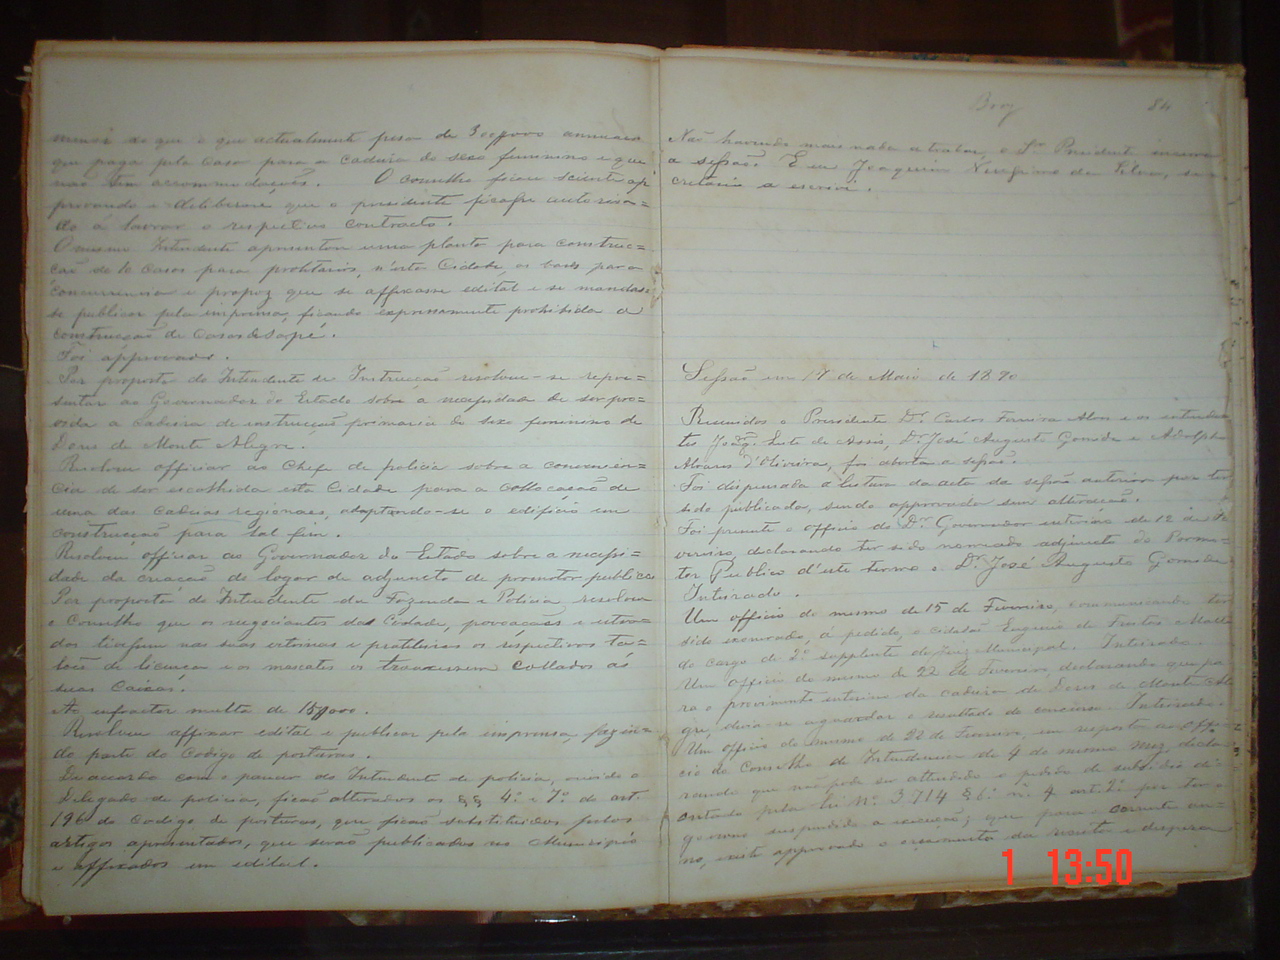 do que o que actualmente pesa de annuaes
que paga pela casa para a cadeira do sexo feminino e que
não tem accommodações. O conselho ficou sciente ap
provando e deliberou que o presidente ficasse autorisa=
do á lavrar o respectivo contracto.
O mesmo Intendente apresentou uma planta para construc=
ção de 10 casas para proletarios, n'esta Cidade, as bases para
concurrencia e propoz que se affixasse edital e se mandas=
se publicar pela imprensa, ficando expressamente prohibida a
construcção de casas de sapé.
Foi approvado.
Por proposta do Intendente de Instrucção resolveu-se repre=
sentar ao Governador do Estado sobre a necessidade de ser pro=
vida a cadeira de instrucção primaria do sexo feminino de
Dores de Monte Alegre.
Resolveu officiar ao Chefe de policia sobre a convenien=
cia de ser escolhida esta Cidade para a collocação de
uma das cadeias regionaes, adaptando-se o edificio em
construcção para tal fim.
Resolveu officiar ao Governador do Estado sobre a necessi=
dade da creação do logar de adjuncto de promotor publico
Por proposta do Intendente da Fazenda e Policia resolveu
o Conselho que os negociantes da Cidade, povoações e estra=
das tivessem nas suas vitrinas e pratileiras os respectivos ta=
lões de licença e os mascates os trouxessem collados ás
suas caixas.
Ao infractor multa de 15$000.
Resolveu affixar edital e publicar pela imprensa, fazen=
do parte do Codigo de posturas.
De accordo com o parecer do Intendente de policia, ouvido o
Delegado de policia, ficão alterados os §§ 4º e 7º do art.
196 do Codigo de posturas, que ficão substituidos pelos
artigos apresentados, que serão publicados no Municipio
e affixados em edital.
84
Não havendo mais nada a tratar, o Sr. Presidente encerrou
a sessão. E eu Joaquim da Silva, se=
cretario a escrevi.
Sessão em 17 de Maio de 1890
Reunidos o Presidente Dr. Carlos Ferreira Alves e os intenden
tes Joaq. Leite de Assis, Dr. José Augusto Gomide e Adolpho
Alvares d'Oliveira, foi aberta a sessão.
Foi dispensada a leitura da acta da sessão anterior por ter
sido publicada, sendo approvada sem alteração.
Foi presente o officio do Dr. Governador interino de 12 de Fe
vereiro, declarando ter sido nomeado adjuncto do Promo=
tor Publico d'este termo o Dr. José Augusto Gomide.
Inteirado.
Um officio do mesmo de 15 de Fevereiro, communicando ter
sido exonerado, á pedido, o cidadão Eugenio de Freitas
do cargo de 2º supplente do Juiz Municipal. Inteirado.
Um officio do mesmo de 22 de Fevereiro, declarando que pa
ra o provimento interino da cadeira de Dores de Monte Ale
gre, deve-se aguardar o resultado do concurso. Inteirado.
Um officio do mesmo de 22 de Fevereiro, em resposta ao offi
cio do Conselho de Intendencia de 4 do mesmo mez, decla
rando que não pode ser attendido o pedido de subsidio di
ctado pela lei nº 3714 § 6º nº 4 art. 2º por ter o
governo suspendido a execução; que para o corrente an=
no, existe approvado o orçamento da receita e despeza
1 13:50